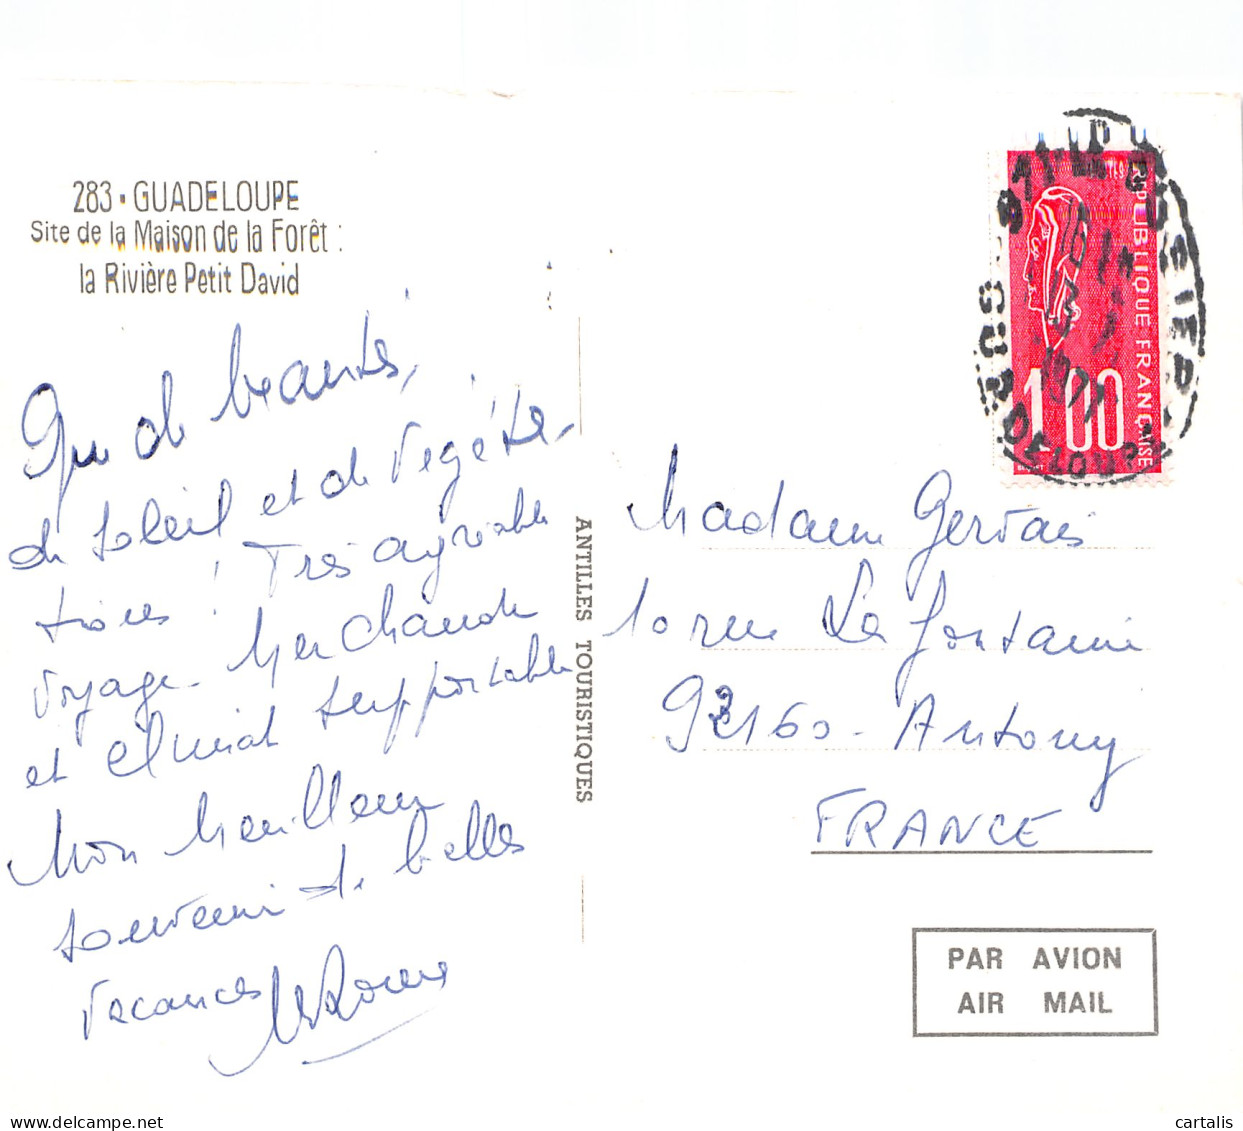 283 - GUADELOUPE
Site de la Maison de la Forêt :
la Rivière Petit David
Que de beautés,
de soleil et de végéta-
tions ! Très agréable
voyage. Mer chaude
et climat supportable
Mon meilleur
souvenir de belles
vacances
ANTILLES TOURISTIQUES
REPUBLIQUE FRANÇAISE
1,00
POSTES
971 LE GOSIER
GUADELOUPE
1977
Madame Gervais
10 rue La Fontaine
92160 - Antony
FRANCE
PAR AVION
AIR MAIL
delcampe.net
cartalis